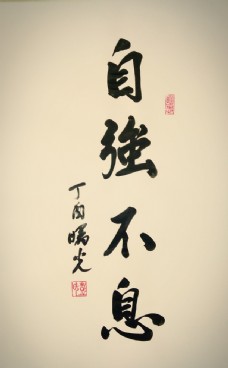 自強不息
丁酉曙光